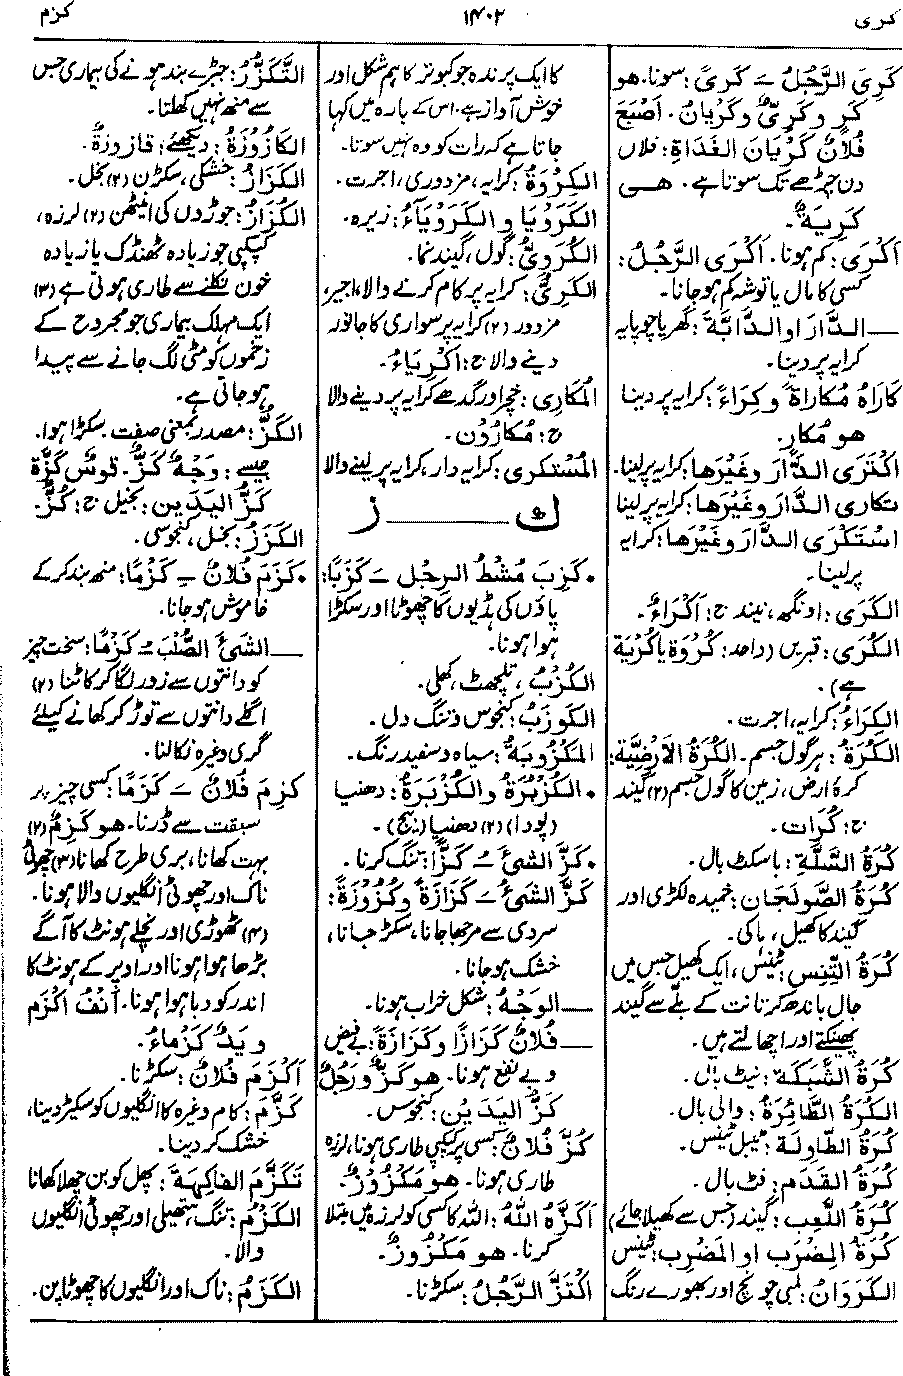 کری
۱۴۰۲
کزم
كَرِىَ الرَّجُلُ ــَـ كَرىً: سونا۔ هو
كَرٍ و كَرِىٌّ وكَرْيَانُ. اَصْبَحَ
فُلَانٌ كَرْيَانَ الغَدَاةِ: فلاں
دن چڑھے تک سوتا ہے۔ هــى
كَرِيَةٌ.
اَكْرَى: کم ہونا۔ اَكْرَى الرَّجُلُ:
کسی کا مال یا توشہ کم ہو جانا۔
ــــ الــدَّارَ او الــدَّابَّةَ: گھر یا چوپایہ
کرایہ پر دینا۔
كَارَاهُ مُكَارَاةً وكِرَاءً: کرایہ پر دینا
هو مُكارٍ.
اكْتَرَى الدَّارَ وغَيْرَها: کرایہ پر لینا۔
تكارى الدَّارَ وغَيْرَها: کرایہ پر لینا
اسْتَكْرَى الــدَّارَ وغَيْرَها: کرایہ
پر لینا۔
الكَرَى: اونگھ، نیند ج: اَكْرَاءٌ.
الكُرَى: قبریں (واحد: كُرْوَة یا كُرْيَة
ہے)۔
الكِرَاءُ: کرایہ، اجرت۔
الكُرَةُ: ہر گول جسم۔ الكُرَةُ الاَرْضِيَّة:
کرۂ ارض، زمین کا گول جسم (۲) گیند
ج: كُرَات.
كُرَةُ السَّلَّةِ: باسکٹ بال۔
كُرَةُ الصَّولَجَان: خمیدہ لکڑی اور
گیند کا کھیل، ہاکی۔
كُرَةُ التِّنِس: ٹینس، ایک کھیل جس میں
جال باندھ کر تانت کے بلّے سے گیند
پھینکتے اور اچھالتے ہیں۔
كُرَةُ الشَّبَكَة: نیٹ بال۔
الكُرَةُ الطَّائِرَةُ: والی بال۔
كُرَةُ الطَّاوِلَة: ٹیبل ٹینس۔
كُرَةُ القَدَم: فٹ بال۔
كُرَةُ اللَّعِب: گیند (جس سے کھیلا جائے)
كُرَةُ المِضْرَب او المَضْرِب: ٹینس
الكَرَوَانُ: لمبی چونچ اور بھورے رنگ
کا ایک پرندہ جو کبوتر کا ہم شکل اور
خوش آواز ہے، اس کے بارہ میں کہا
جاتا ہے کہ رات کو وہ نہیں سوتا۔
الكِرْوَةُ: کرایہ، مزدوری، اجرت۔
الكَرَوْيَا و الكَرَوْيَآءُ: زیرہ۔
الكُرَوِىُّ: گول، گیند نما۔
الكَرِىُّ: کرایہ پر کام کرنے والا، اجیر،
مزدور (۲) کرایہ پر سواری کا جانور
دینے والا ج: اَكْرِيَاءُ.
المُكَارِى: خچر اور گدھے کرایہ پر دینے والا
ج: مُكارُوْن.
المُسْتكرِى: کرایہ دار، کرایہ پر لینے والا
ك ــــــ ز
• كَزِبَ مُشْطُ الرِجْل ــَـ كَزَبًا:
پاؤں کی ہڈیوں کا چھوٹا اور سکڑا
ہوا ہونا۔
الكُزْبُ، تلچھٹ، کھلی۔
الكَوزَبُ: کنجوس و تنگ دل۔
المَكْزُوبَةُ: سیاہ و سفید رنگ۔
• الكُزْبُرَةُ والكُزْبَرَةُ: دھنیا
(پودا) (۲) دھنیا (بیج)۔
• كَزَّ الشىءَ ــُـ كَزًّا: تنگ کرنا۔
كَزَّ الشىءُ ــَـ كَزَازَةً وكُزُوْزَةً:
سردی سے مرجھا جانا، سکڑ جانا،
خشک ہو جانا۔
ــــ الوَجْهُ: شکل خراب ہونا۔
ــــ فُلَانٌ كَزَازًا وكَزَازَةً: بے فیض
و بے نفع ہونا۔ هو كَزٌّ ورَجُلٌ
كَزُّ اليَدَيْن: کنجوس۔
كُزَّ فُلَانٌ: کسی پر کپکپی طاری ہونا، لرزہ
طاری ہونا۔ هو مَكْزُوْزٌ.
اَكَزَّهُ اللهُ: اللہ کا کسی کو لرزہ میں مبتلا
کرنا۔ هو مَكْزُوزٌ.
اكْتَزَّ الرَّجُلُ: سکڑنا۔
التَّكَزُّزُ: جبڑے بند ہونے کی بیماری جس
سے منھ نہیں کھلتا۔
الكَازُوْزَةُ: دیکھئے: قازوزةٌ.
الكَزَازُ: خشکی، سکڑن (۲) بخل۔
الكُزَازُ: جوڑوں کی اینٹھن (۲) لرزہ،
کپکپی جو زیادہ ٹھنڈک یا زیادہ
خون نکلنے سے طاری ہوتی ہے (۳)
ایک مہلک بیماری جو مجروح کے
زخموں کو مٹی لگ جانے سے پیدا
ہو جاتی ہے۔
الكَزُّ: مصدر بمعنی صفت۔ سکڑا ہوا۔
جیسے: وَجْهٌ كَزٌّ. قوسٌ كَزَّة
كَزُّ اليَدَيـن: بخیل ج: كُزٌّ.
الكَزَزُ: بخل، کنجوسی۔
• كَزَمَ فُلَانٌ ــِـ كَزْمًا: منھ بند کر کے
خاموش ہو جانا۔
ــــ الشىءَ الصُّلْبَ ــُـ كَزْمًا: سخت چیز
کو دانتوں سے زور لگا کر کاٹنا (۲)
اگلے دانتوں سے توڑ کر کھانے کیلئے
گری وغیرہ نکالنا۔
كَزِمَ فُلَانٌ ــَـ كَزَمًا: کسی چیز پر
سبقت سے ڈرنا۔ هو كَزِمٌ (۲)
بہت کھانا، بری طرح کھانا (۳) چھوٹی
ناک اور چھوٹی انگلیوں والا ہونا۔
(۴) ٹھوڑی اور نچلے ہونٹ کا آگے
بڑھا ہوا ہونا اور اوپر کے ہونٹ کا
اندر کو دبا ہوا ہونا۔ اَنْفٌ اَكْزَم
و يَدٌ كَزْماءُ.
اَكْزَمَ فُلَانٌ: سکڑنا۔
كَزَّمَ: کام وغیرہ کا انگلیوں کو سکیڑ دینا،
خشک کر دینا۔
تَكَزَّمَ الفَاكِهَةَ: پھل کو بن چھلا کھانا
الكَزْمُ: تنگ ہتھیلی اور چھوٹی انگلیوں
والا۔
الكَزَمُ: ناک اور انگلیوں کا چھوٹا پن۔